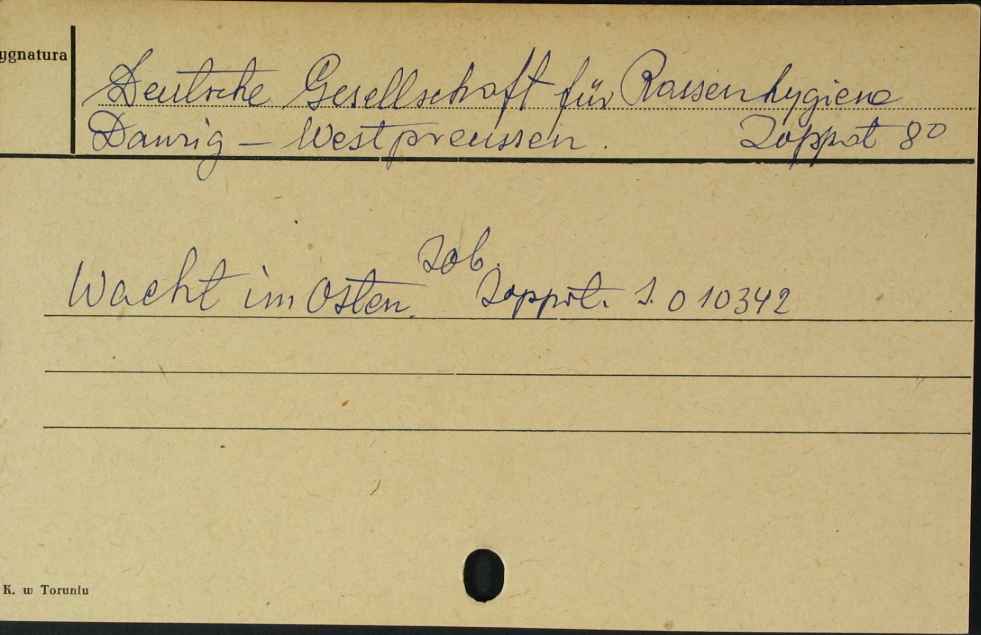 ygnatura
Deutsche Gesellschaft für Rassenhygiene
Danzig – Westpreussen. Zoppot 8°
Zob.
Wacht im Osten. Zoppot. S. 010342
K. w Toruniu